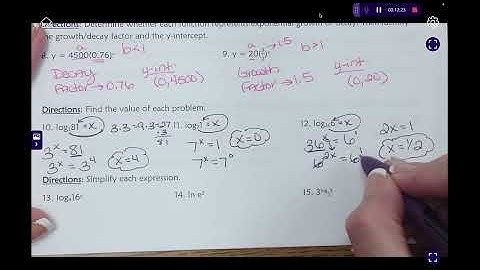 00:12:23
Directions: Determine whether each function represents exponential growth or decay.
the growth/decay factor and the y-intercept.
8. y = 4500(0.76)ˣ a b<1
9. a →1.5 b>1
Decay y-int
Factor → 0.76 (0, 4500)
Growth y-int
Factor → 1.5 (0, 20)
Directions: Find the value of each problem.
10. log₃81 = x 3·3=9·3=27
·3
81
3ˣ = 81
3ˣ = 3⁴ x=4
11. log₇1 = x
7ˣ = 1 x=0
7ˣ = 7⁰
12. log₃₆6 = x
36ˣ = 6¹ 2x = 1
6²ˣ = 6¹ x = 1/2
Directions: Simplify each expression.
13. log₄16ˣ
14. ln e²
15.